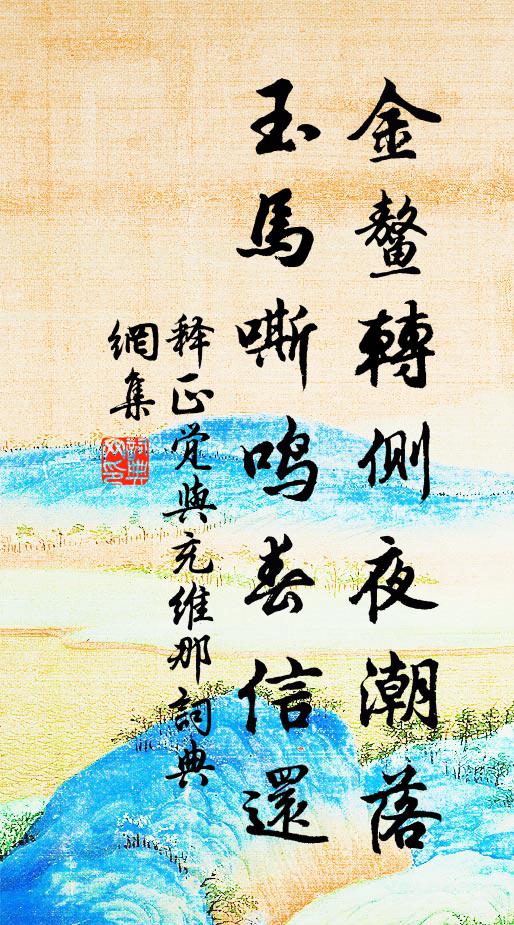 金鳌轉側夜潮落
玉馬嘶鸣春信還
释正覚與充維那詞典
網集